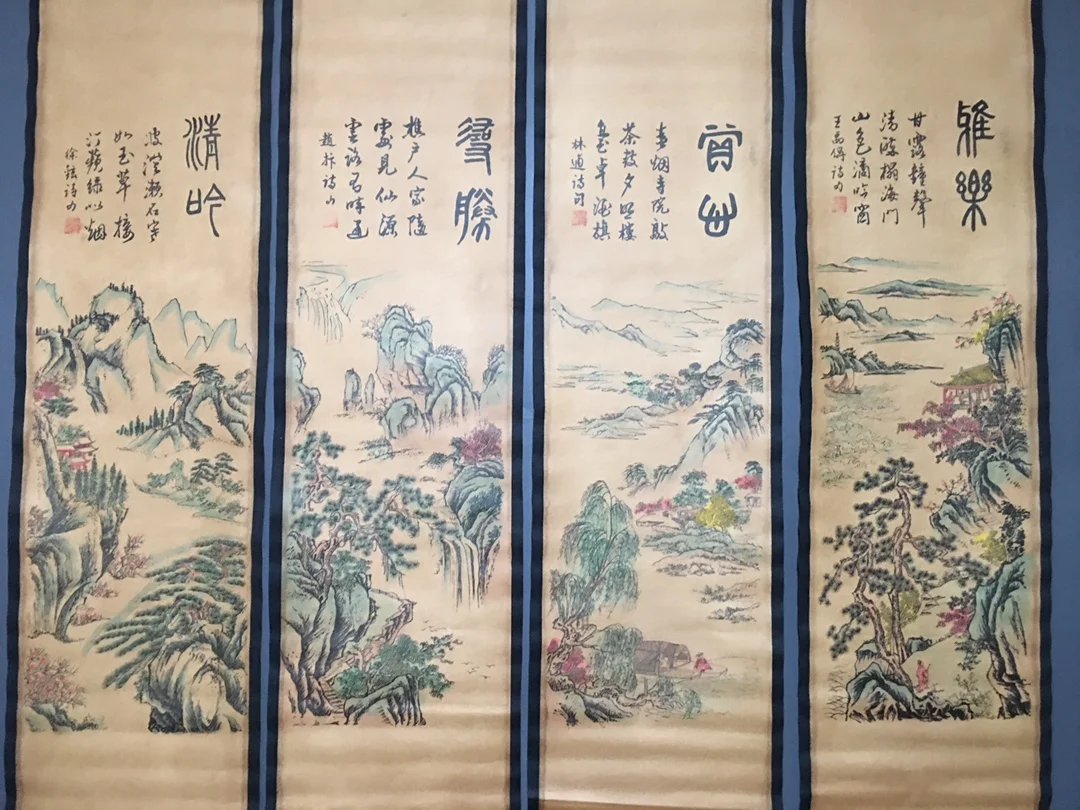 雅樂
甘露鐘聲
清榻海門
山色滴吟窗
王禹偁詩句
春烟寺院敲
茶鼓夕照樓
臺卓酒旗
林逋詩句
尋勝
樵户人家隨
處見仙源
雲路有時通
趙抃詩句
清吟
波澄瀨石寒
如玉草接
汀蘋綠似烟
徐鉉詩句